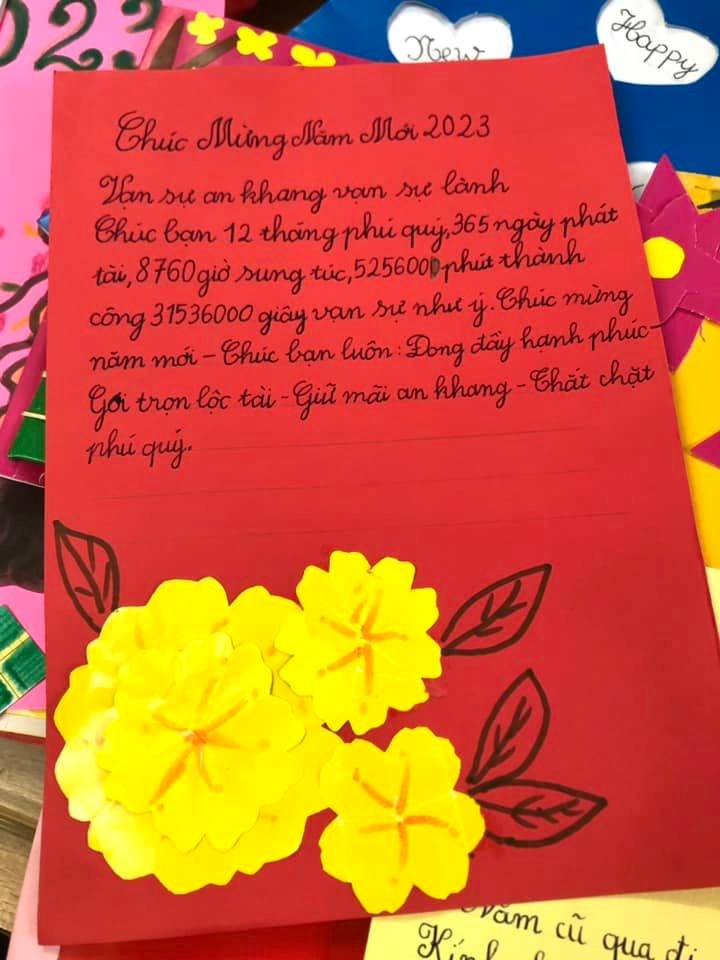 023
New
Happy
Chúc Mừng Năm Mới 2023
Vạn sự an khang vạn sự lành
Chúc bạn 12 tháng phú quý, 365 ngày phát
tài, 8760 giờ sung túc, 525600 phút thành
công 31536000 giây vạn sự như ý. Chúc mừng
năm mới - Chúc bạn luôn: Đong đầy hạnh phúc
Gói trọn lộc tài - Giữ mãi an khang - Thắt chặt
phú quý.
Năm cũ qua đi
Kính